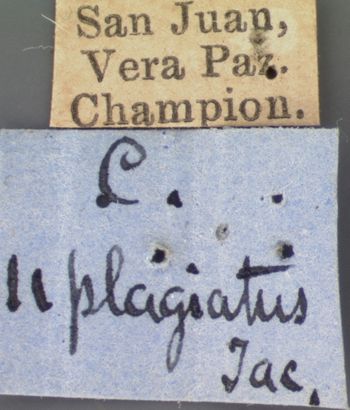 San Juan,
Vera Paz.
Champion.
C.
11 plagiatus
Jac.